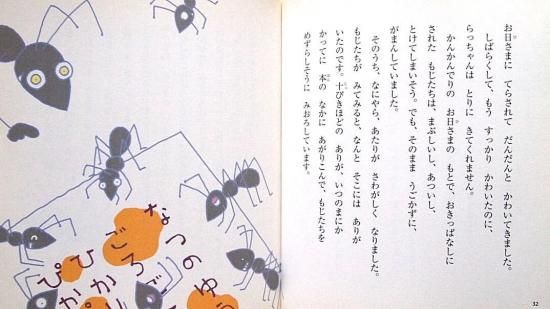 お日さまに てらされて だんだんと かわいてきました。
しばらくして、もう すっかり かわいたのに、
らっちゃんは とりに きてくれません。
かんかんでりの お日さまの もとで、おきっぱなしに
された もじたちは、まぶしいし、あついし、
とけてしまいそう。でも、そのまま うごかずに、
がまんしていました。
そのうち、なにやら、あたりが さわがしく なりました。
もじたちが みてみると、なんと そこには ありが
いたのです。十ぴきほどの ありが、いつのまにか
かってに 本の なかに あがりこんで、もじたちを
めずらしそうに みおろしています。
32
なつのゆう
ごろご
ひかり
ぴかぴ